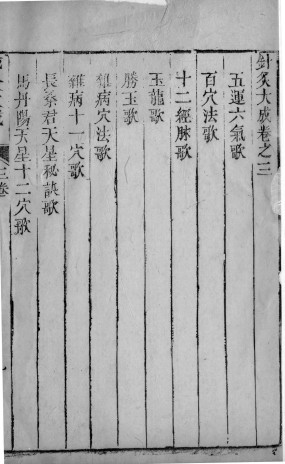 針灸大成卷之三
五運六氣歌
百穴法歌
十二經脉歌
玉龍歌
勝玉歌
雜病穴法歌
雜病十一穴歌
長桑君天星秘訣歌
馬丹陽天星十二穴歌
三卷